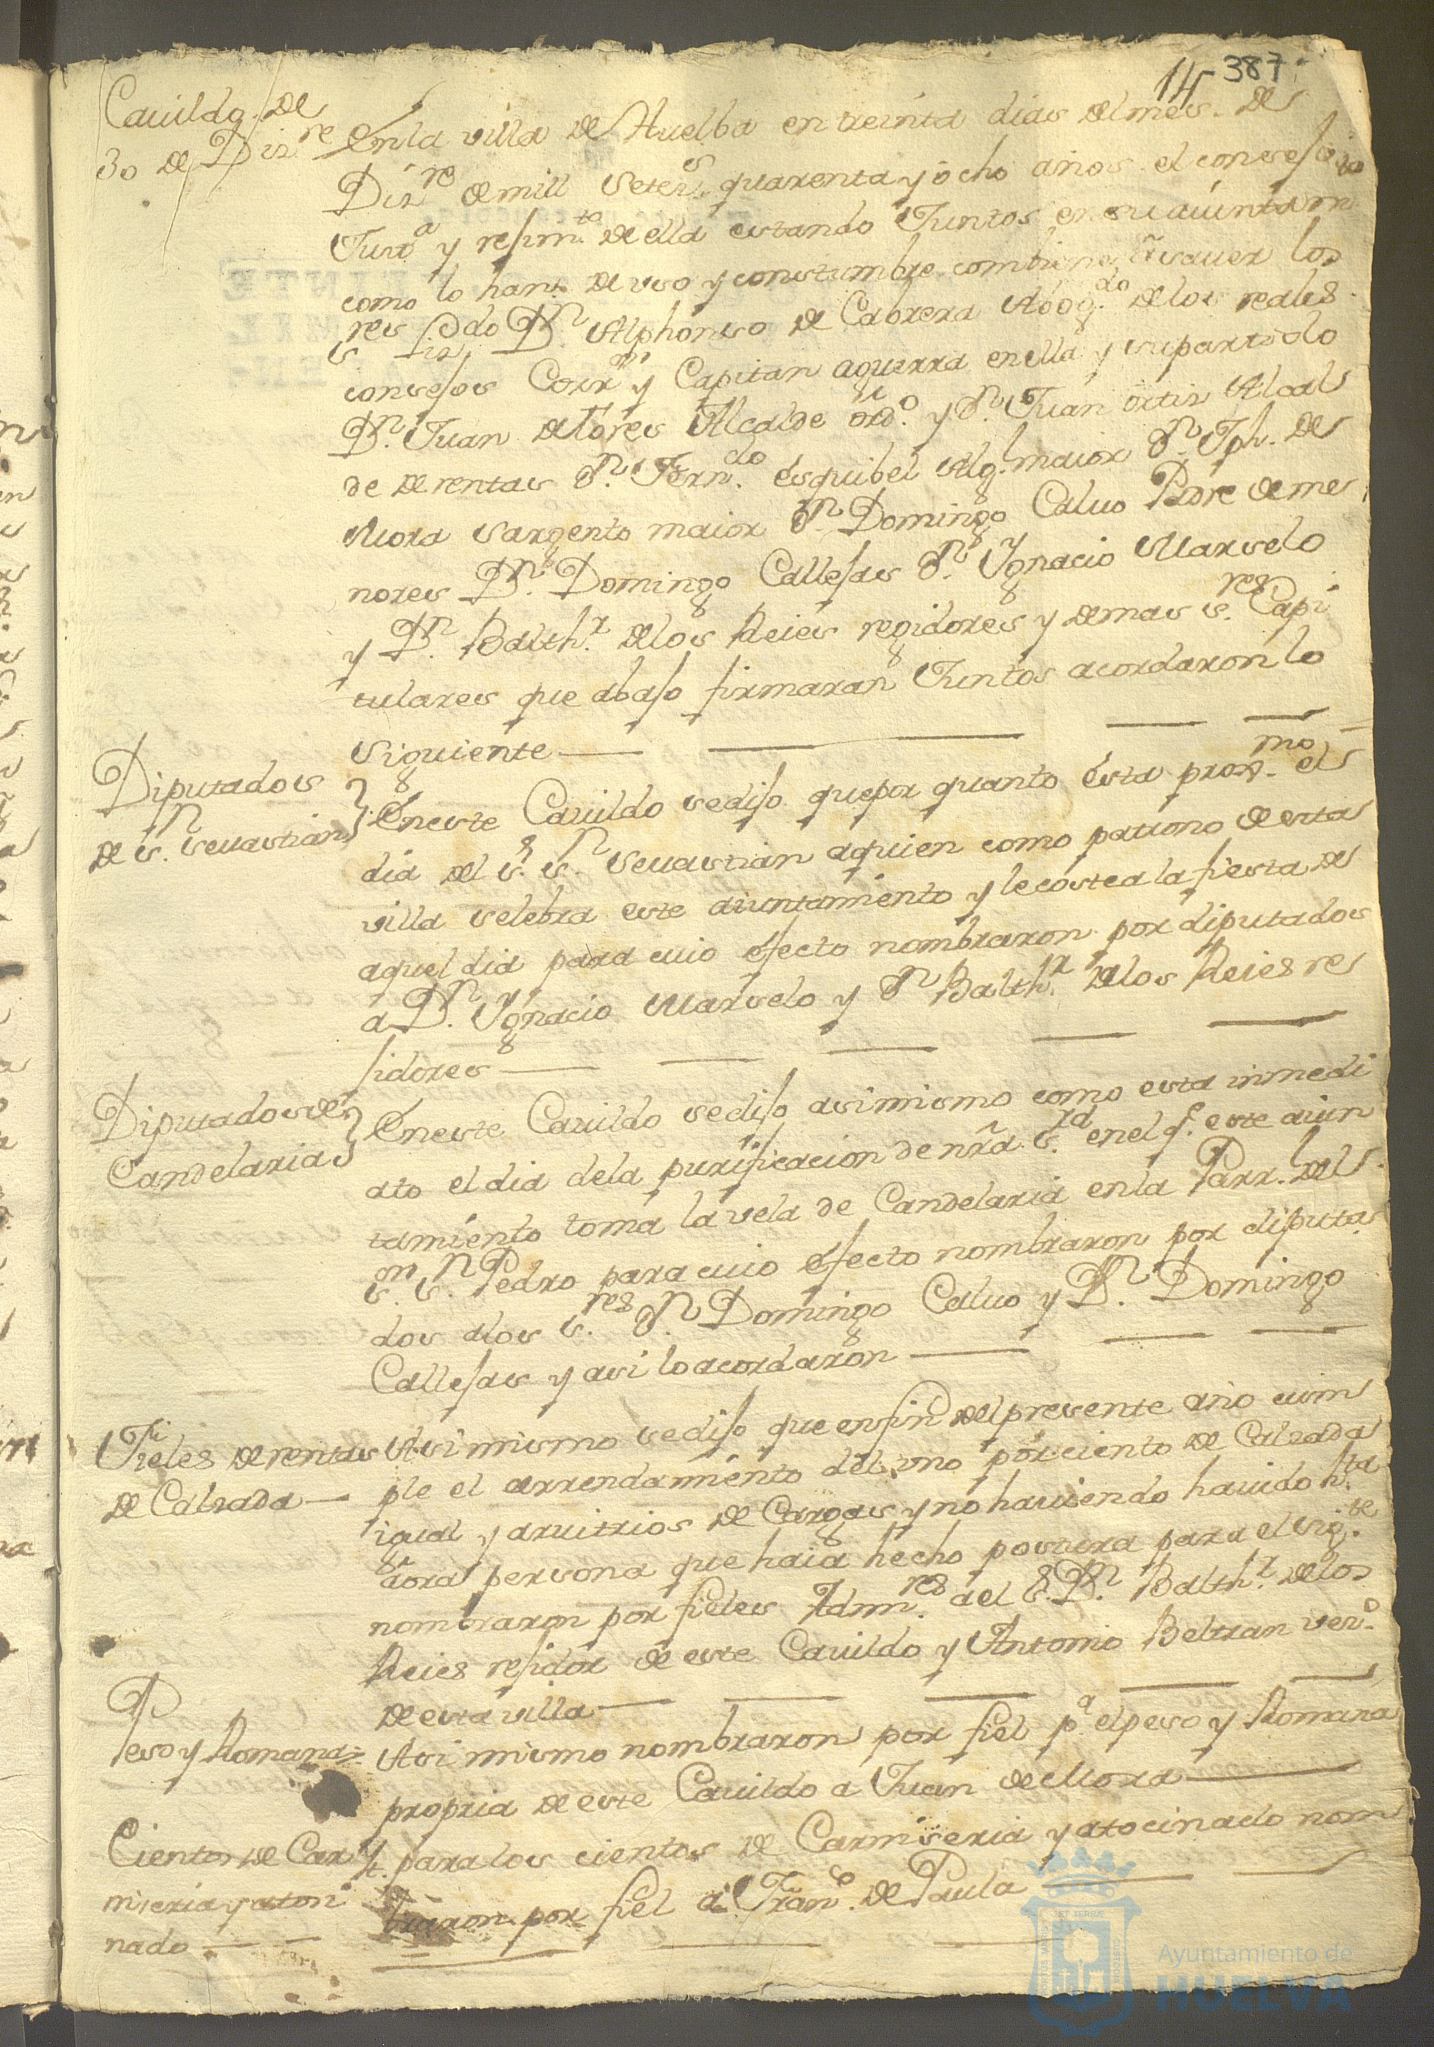 14 387
Cauildo de
30 de Diz.re
En la villa de Huelba en treinta dias del mes de
Diz.re de mill setez.s quarenta y ocho años el consejo
Just.a y rejim.to de ella estando Juntos en su aiuntam.to
como lo han de uso y constumbre combiene a sauer los
s.res Lizdo D.n Alphonso de Cabrera Abog.do de los reales
consejos Corr.or y Capitan aguerra en ella y su partido
D.n Juan de Flores Alcalde ord.o y D.n Juan ortiz Alcal
de de rentas D.n Fern.do esquibel Alg.l maior D.n Jph. de
Mora sargento maior D.n Domingo Caluo Padre de me
nores D.n Domingo Callejas D.n Ygnacio Marselo
y D.n Balth.r de los Reies regidores y demas s.res Capi
tulares que abajo firmaran Juntos acordaron lo
siguiente
Diputados
de S.n Seuastian
En este Cauildo se dijo que por quanto esta prox.mo el
dia del S.r S.n Seuastian aquien como patrono de esta
villa selebra este aiuntamiento y le costea la fiesta de
aquel dia para cuio efecto nombraron por diputados
a D.n Ygnacio Marselo y D.n Balth.r de los Reies re
jidores
Diputados de
Candelaria
En este Cauildo se dijo asimismo como esta inmedi
ato el dia de la purificacion de nra S.ra en el q.e este aiun
tamiento toma la vela de Candelaria en la Parr.l del
S.or S.n Pedro para cuio efecto nombraron por diputa
dos alos s.res D.n Domingo Caluo y D.n Domingo
Callejas y asi lo acordaron
Fieles de rentas
de Calzada
Asimismo se dijo que en fin del presente año cum
ple el arrendamiento del uno por ciento de Calzada
igual y aruitrios de Cargas y no hauiendo hauido h.ta
aora persona que haia hecho postura para el sig.te
nombraron por fieles Adm.res a el S.r D.n Balth.r de los
Reies rejidor de este Cauildo y Antonio Beltran vez.o
de esta villa
Peso y Romana
Asi mismo nombraron por fiel p.a el peso y Romana
propria de este Cauildo a Juan de Mora
Cientos de Car
niseria y atosi
nado
Yt. para los cientos de Carniseria y atocinado nom
braron por fiel a Fran.co de Paula
Ayuntamiento de
HUELVA